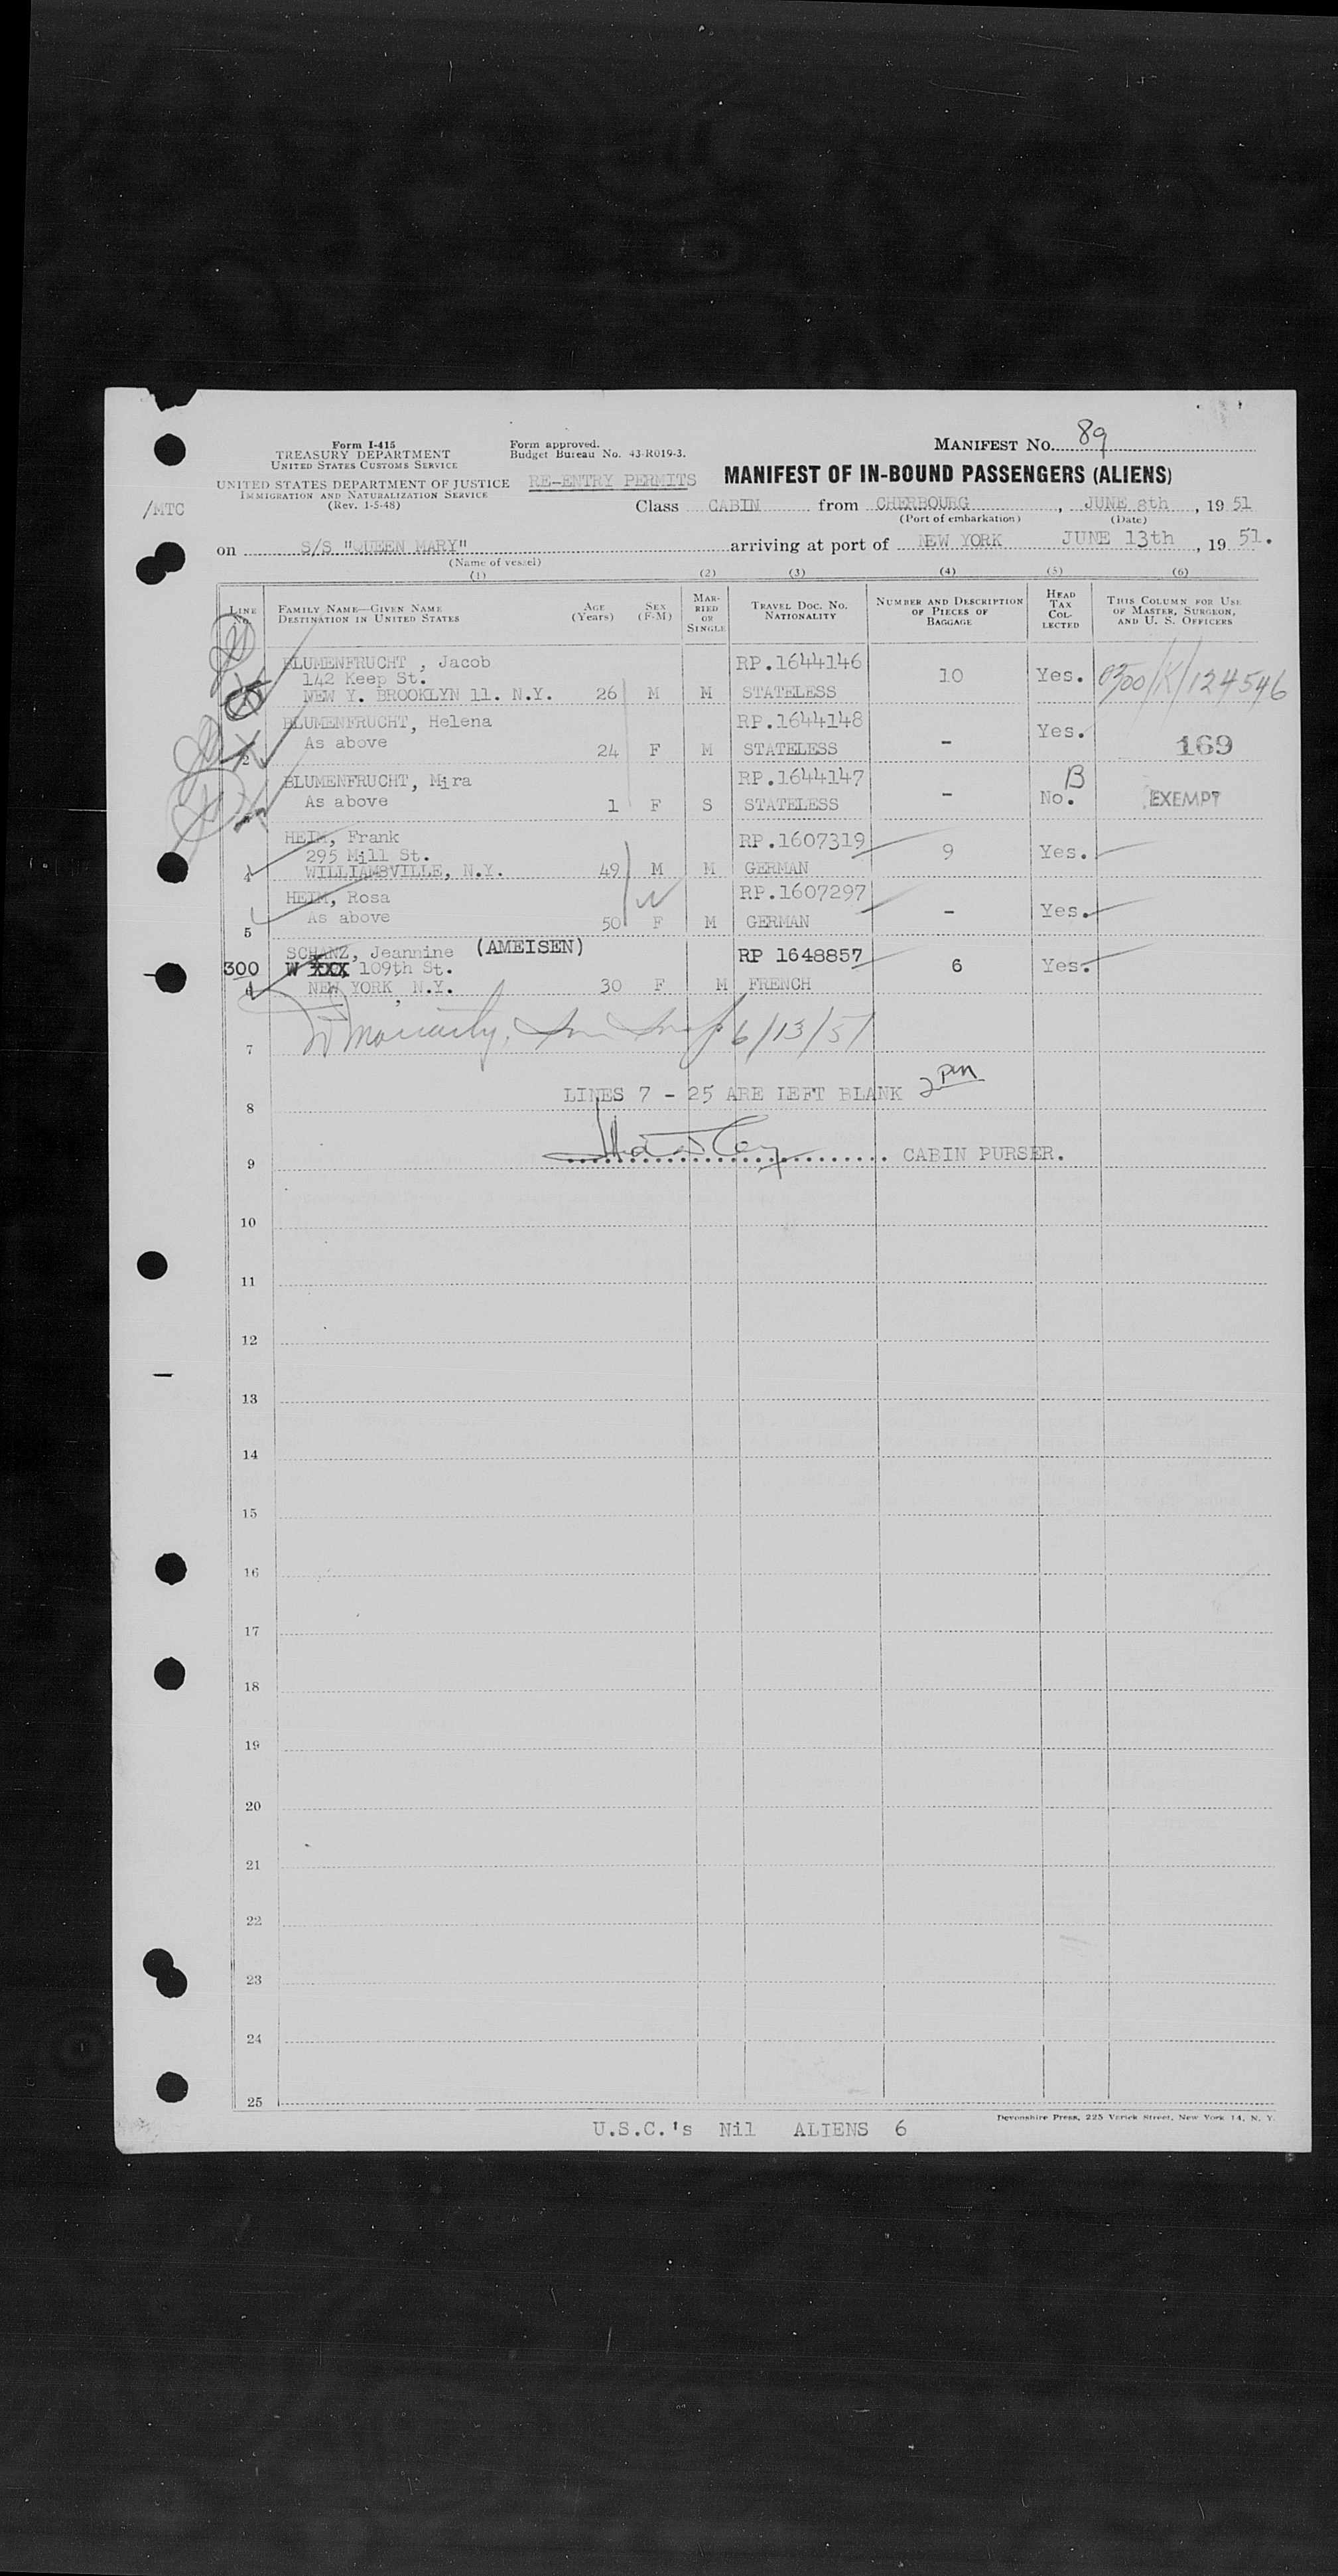 MANIFEST NO. 89
Form I-415
TREASURY DEPARTMENT
UNITED STATES CUSTOMS SERVICE
UNITED STATES DEPARTMENT OF JUSTICE
IMMIGRATION AND NATURALIZATION SERVICE
(Rev. 1-5-48)
Form approved.
Budget Bureau No. 43-R019-3.
RE-ENTRY PERMITS
MANIFEST OF IN-BOUND PASSENGERS (ALIENS)
/MTC
Class CABIN from CHERBOURG, JUNE 8th, 1951
(Port of embarkation) (Date)
on S/S "QUEEN MARY" arriving at port of NEW YORK JUNE 13th, 1951.
(Name of vessel)
(1) (2) (3) (4) (5) (6)
LINE FAMILY NAME—GIVEN NAME DESTINATION IN UNITED STATES AGE (Years) SEX (F-M) MARRIED OR SINGLE TRAVEL DOC. NO. NATIONALITY NUMBER AND DESCRIPTION OF PIECES OF BAGGAGE HEAD TAX COLLECTED THIS COLUMN FOR USE OF MASTER, SURGEON, AND U. S. OFFICERS
BLUMENFRUCHT , Jacob RP.1644146
142 Keep St. 10 Yes. 0300/K/124546
NEW Y. BROOKLYN 11. N.Y. 26 M M STATELESS
BLUMENFRUCHT, Helena RP.1644148 Yes.
2 As above 24 F M STATELESS - 169
BLUMENFRUCHT, Mira RP.1644147 B
As above 1 F S STATELESS - No. EXEMPT
HEIM, Frank RP.1607319
295 Mill St. 9 Yes.
4 WILLIAMSVILLE, N.Y. 49 M M GERMAN
HEIM, Rosa RP.1607297
5 As above 50 F M GERMAN - Yes.
SCHANZ, Jeannine (AMEISEN) RP 1648857
300 W XXX 109th St. 6 Yes.
6 NEW YORK, N.Y. 30 F M FRENCH
7 Moriarty, 6/13/51
LINES 7 - 25 ARE LEFT BLANK 2 PM
8
9 CABIN PURSER.
10
11
12
13
14
15
16
17
18
19
20
21
22
23
24
25
Devonshire Press, 225 Varick Street, New York 14, N. Y.
U.S.C.'s Nil ALIENS 6